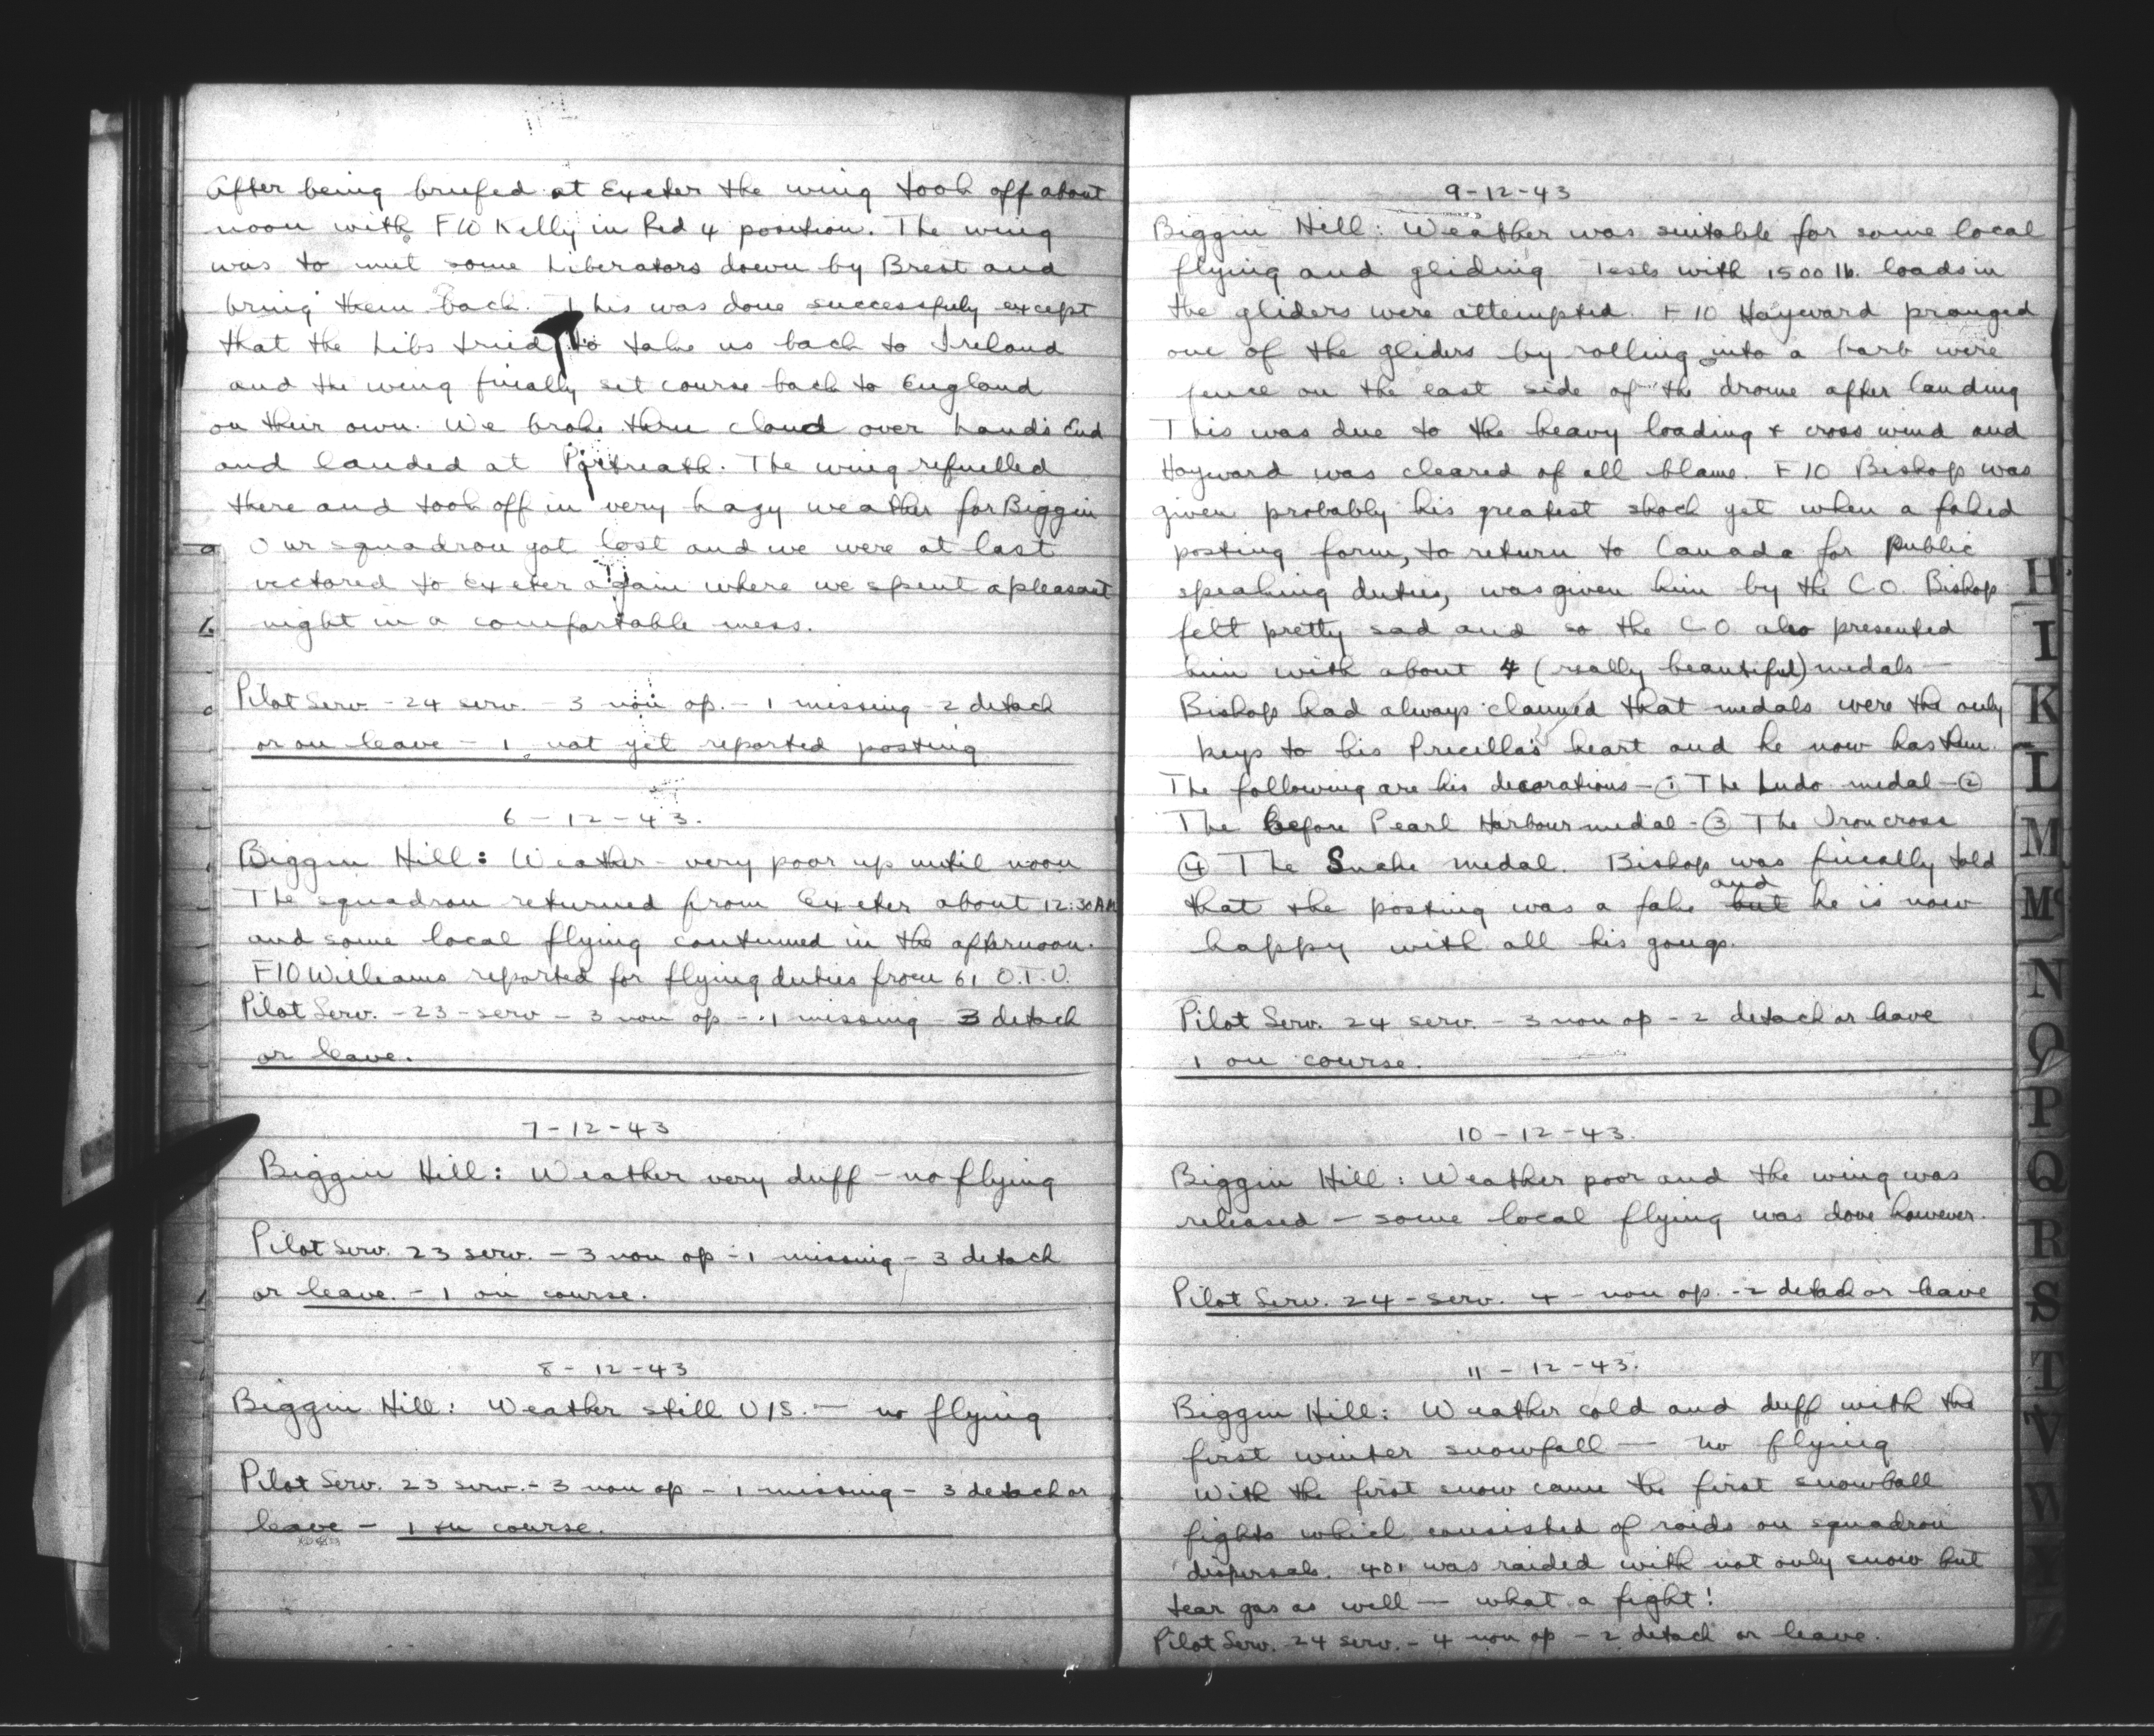 After being briefed at Exeter the wing took off about
noon with F/O Kelly in Red 4 position. The wing
was to met some Liberators down by Brest and
bring them back. This was done successfuly except
that the Libs tried to take us back to Ireland
and the wing finally set course back to England
on their own. We broke thru cloud over Land's End
and landed at Portreath. The wing refuelled
there and took off in very hazy weather for Biggin
Our squadron got lost and we were at last
vectored to Exeter again where we spent a pleasant
night in a comfortable mess.
Pilot Serv - 24 serv. - 3 non op. - 1 missing - 2 detach
or on leave - 1 not yet reported posting
6-12-43.
Biggin Hill: Weather - very poor up until noon
The squadron returned from Exeter about 12:30 AM
and some local flying continued in the afternoon.
F/O Williams reported for flying duties from 61 O.T.U.
Pilot Serv. - 23 - serv - 3 non op - 1 missing - 3 detach
or leave.
7-12-43
Biggin Hill: Weather very duff - no flying
Pilot Serv. 23 serv. - 3 non op - 1 missing - 3 detach
or leave. - 1 on course.
8-12-43
Biggin Hill: Weather still U/S. - no flying
Pilot Serv. 23 serv. - 3 non op - 1 missing - 3 detach or
leave - 1 on course.
9-12-43
Biggin Hill: Weather was suitable for some local
flying and gliding Tests with 1500 lb. loads in
the gliders were attempted. F/O Hayward pranged
one of the gliders by rolling into a barb wire
fence on the east side of the drome after landing
This was due to the heavy loading + cross wind and
Hayward was cleared of all blame. F/O Bishop was
given probably his greatest shock yet when a faked
posting form, to return to Canada for public
speaking duties, was given him by the C.O. Bishop
felt pretty sad and so the C.O also presented
him with about 4 (really beautiful) medals -
Bishop had always claimed that medals were the only
keys to his Pricilla's heart and he now has them.
The following are his decorations - ① The Ludo medal - ②
The before Pearl Harbour medal - ③ The Iron cross
④ The Snake medal. Bishop was finally told
that the posting was a fake but and he is now
happy with all his gongs.
Pilot Serv. 24 serv. - 3 non op - 2 detach or leave
1 on course.
10-12-43.
Biggin Hill: Weather poor and the wing was
released - some local flying was done however.
Pilot Serv. 24 - serv. 4 - non op. - 2 detach or leave
11-12-43.
Biggin Hill: Weather cold and duff with the
first winter snowfall - no flying
With the first snow came the first snowball
fights which consisted of raids on squadron
dispersals. 401 was raided with not only snow but
tear gas as well - what a fight!
Pilot Serv. 24 serv. - 4 non op - 2 detach or leave.
H
I
K
L
M
Mc
N
O
P
Q
R
S
T
V
W
Y
Z